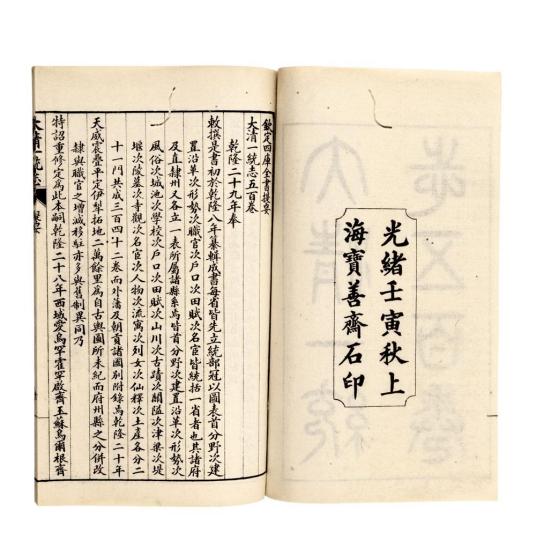 光緒壬寅秋上
海寶善齋石印
欽定四庫全書提要
大清一統志五百卷
乾隆二十九年奉
敕撰是書初於乾隆八年纂輯成書每省皆先立統部冠以圖表首分野次建
置沿革次形勢次職官次戶口次田賦次名宦皆統括一省者也其諸府
及直隸州又各立一表所屬諸縣系焉皆首分野次建置沿革次形勢次
風俗次城池次學校次戶口次田賦次山川次古蹟次關隘次津梁次堤
堰次陵墓次寺觀次名宦次人物次流寓次列女次仙釋次土產各分二
十一門共成三百四十二卷而外藩及朝貢諸國別附錄焉乾隆二十年
天威震疊平定伊犁拓地二萬餘里為自古輿圖所未紀而府州縣之分併改
隸與職官之增減移駐亦多與舊制異同乃
特詔重修定為此本嗣乾隆二十八年西域愛烏罕霍罕啟齊玉蘇烏爾根齊
大清一統志 提要